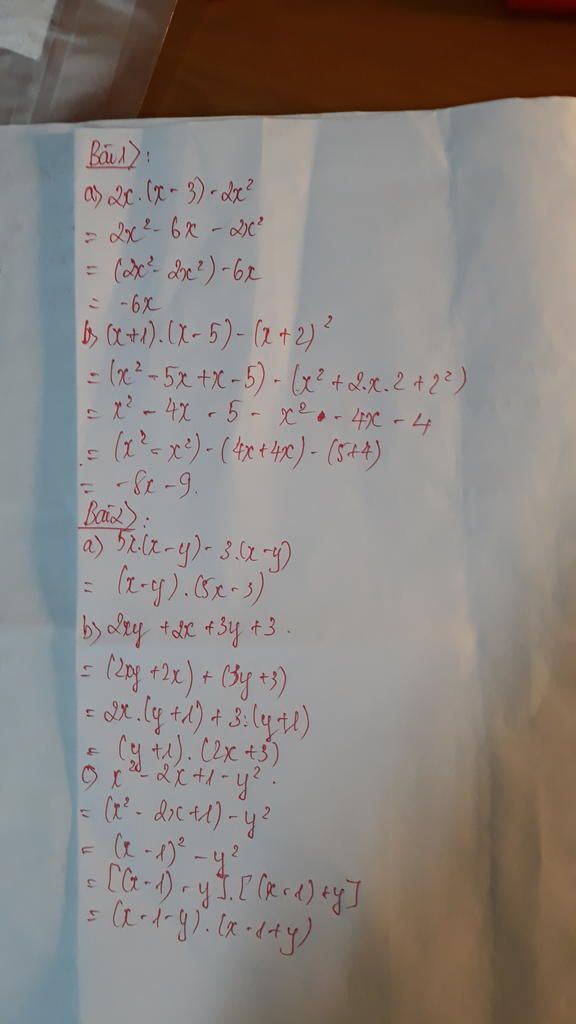 Bài 1):
a) 2x.(x - 3) - 2x²
= 2x² - 6x - 2x²
= (2x² - 2x²) - 6x
= -6x
b) (x+1).(x - 5) - (x + 2)²
= (x² - 5x + x - 5) - (x² + 2.x.2 + 2²)
= x² - 4x - 5 - x² - 4x - 4
= (x² - x²) - (4x + 4x) - (5+4)
= -8x - 9.
Bài 2):
a) 5x.(x - y) - 3.(x - y)
= (x - y).(5x - 3)
b) 2xy + 2x + 3y + 3.
= (2xy + 2x) + (3y + 3)
= 2x.(y + 1) + 3.(y + 1)
= (y + 1).(2x + 3)
c) x² - 2x + 1 - y².
= (x² - 2x + 1) - y²
= (x - 1)² - y²
= [(x - 1) - y].[(x - 1) + y]
= (x - 1 - y).(x - 1 + y)